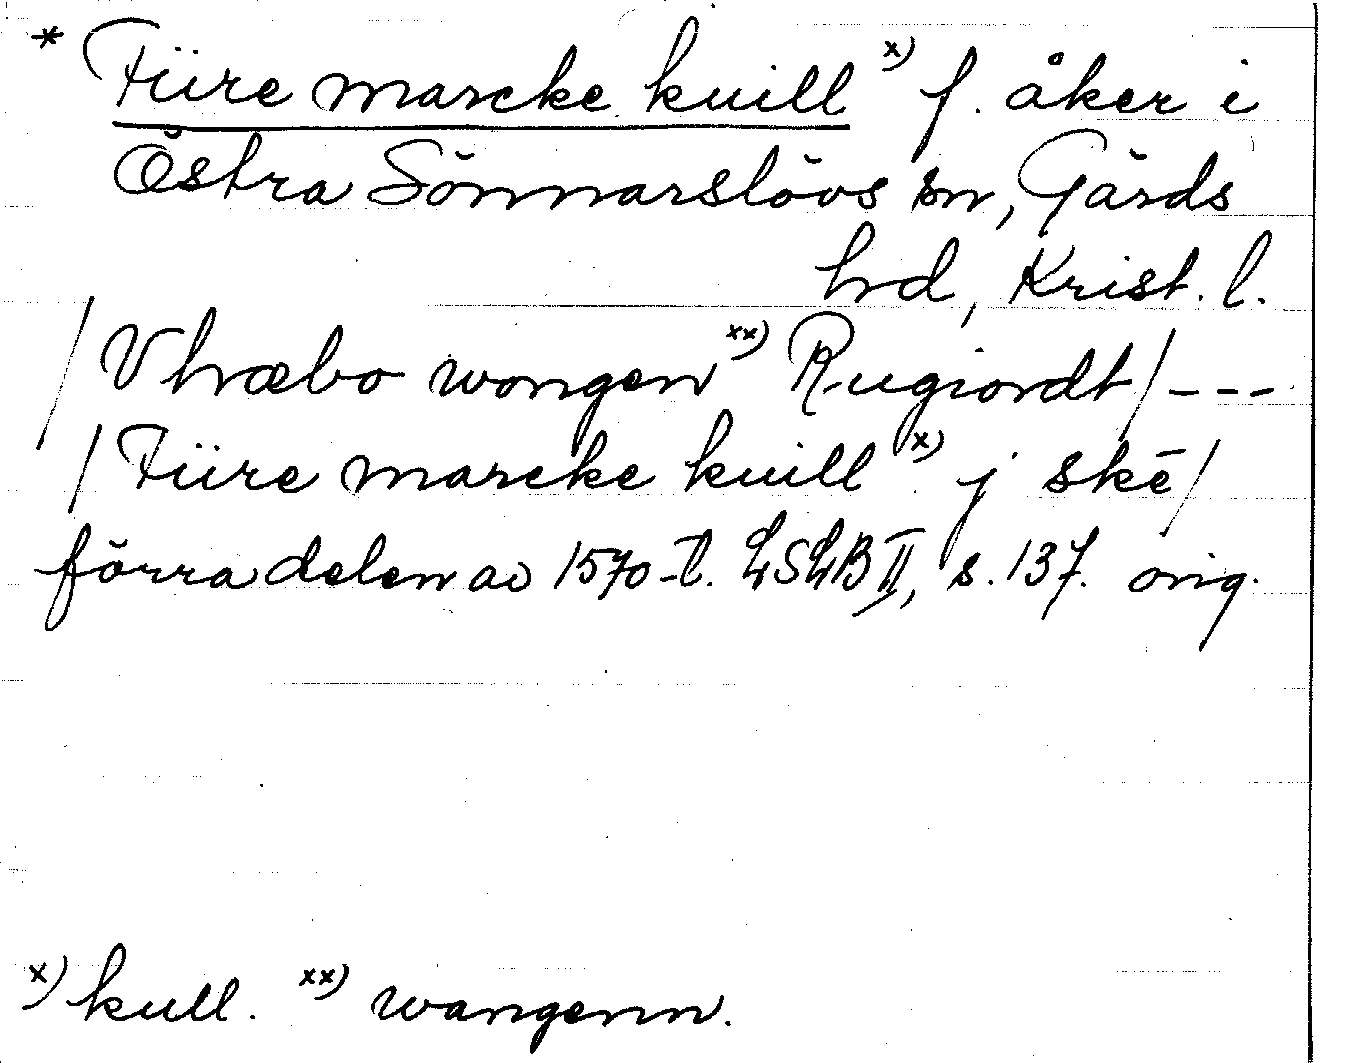 * Fiire marcke kuill x) f. åker i
Östra Sönnarslövs sn, Gärds
hrd, Krist. l.
/Vhræbo wongen xx) Rugiordt/ ---
/Fiire marcke kuill x) j skē/
förra delen av 1570-t. LSLB II, s. 137. orig.
x) kull. xx) wangenn.